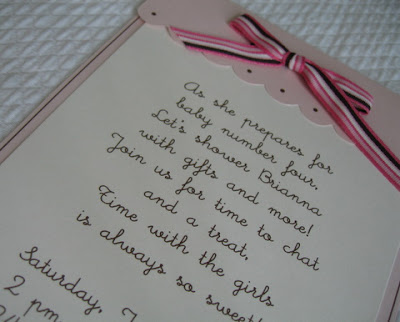 As she prepares for
baby number four,
Let's shower Brianna
with gifts and more!
Join us for time to chat
and a treat,
Time with the girls
is always so sweet!
Saturday,
2 pm